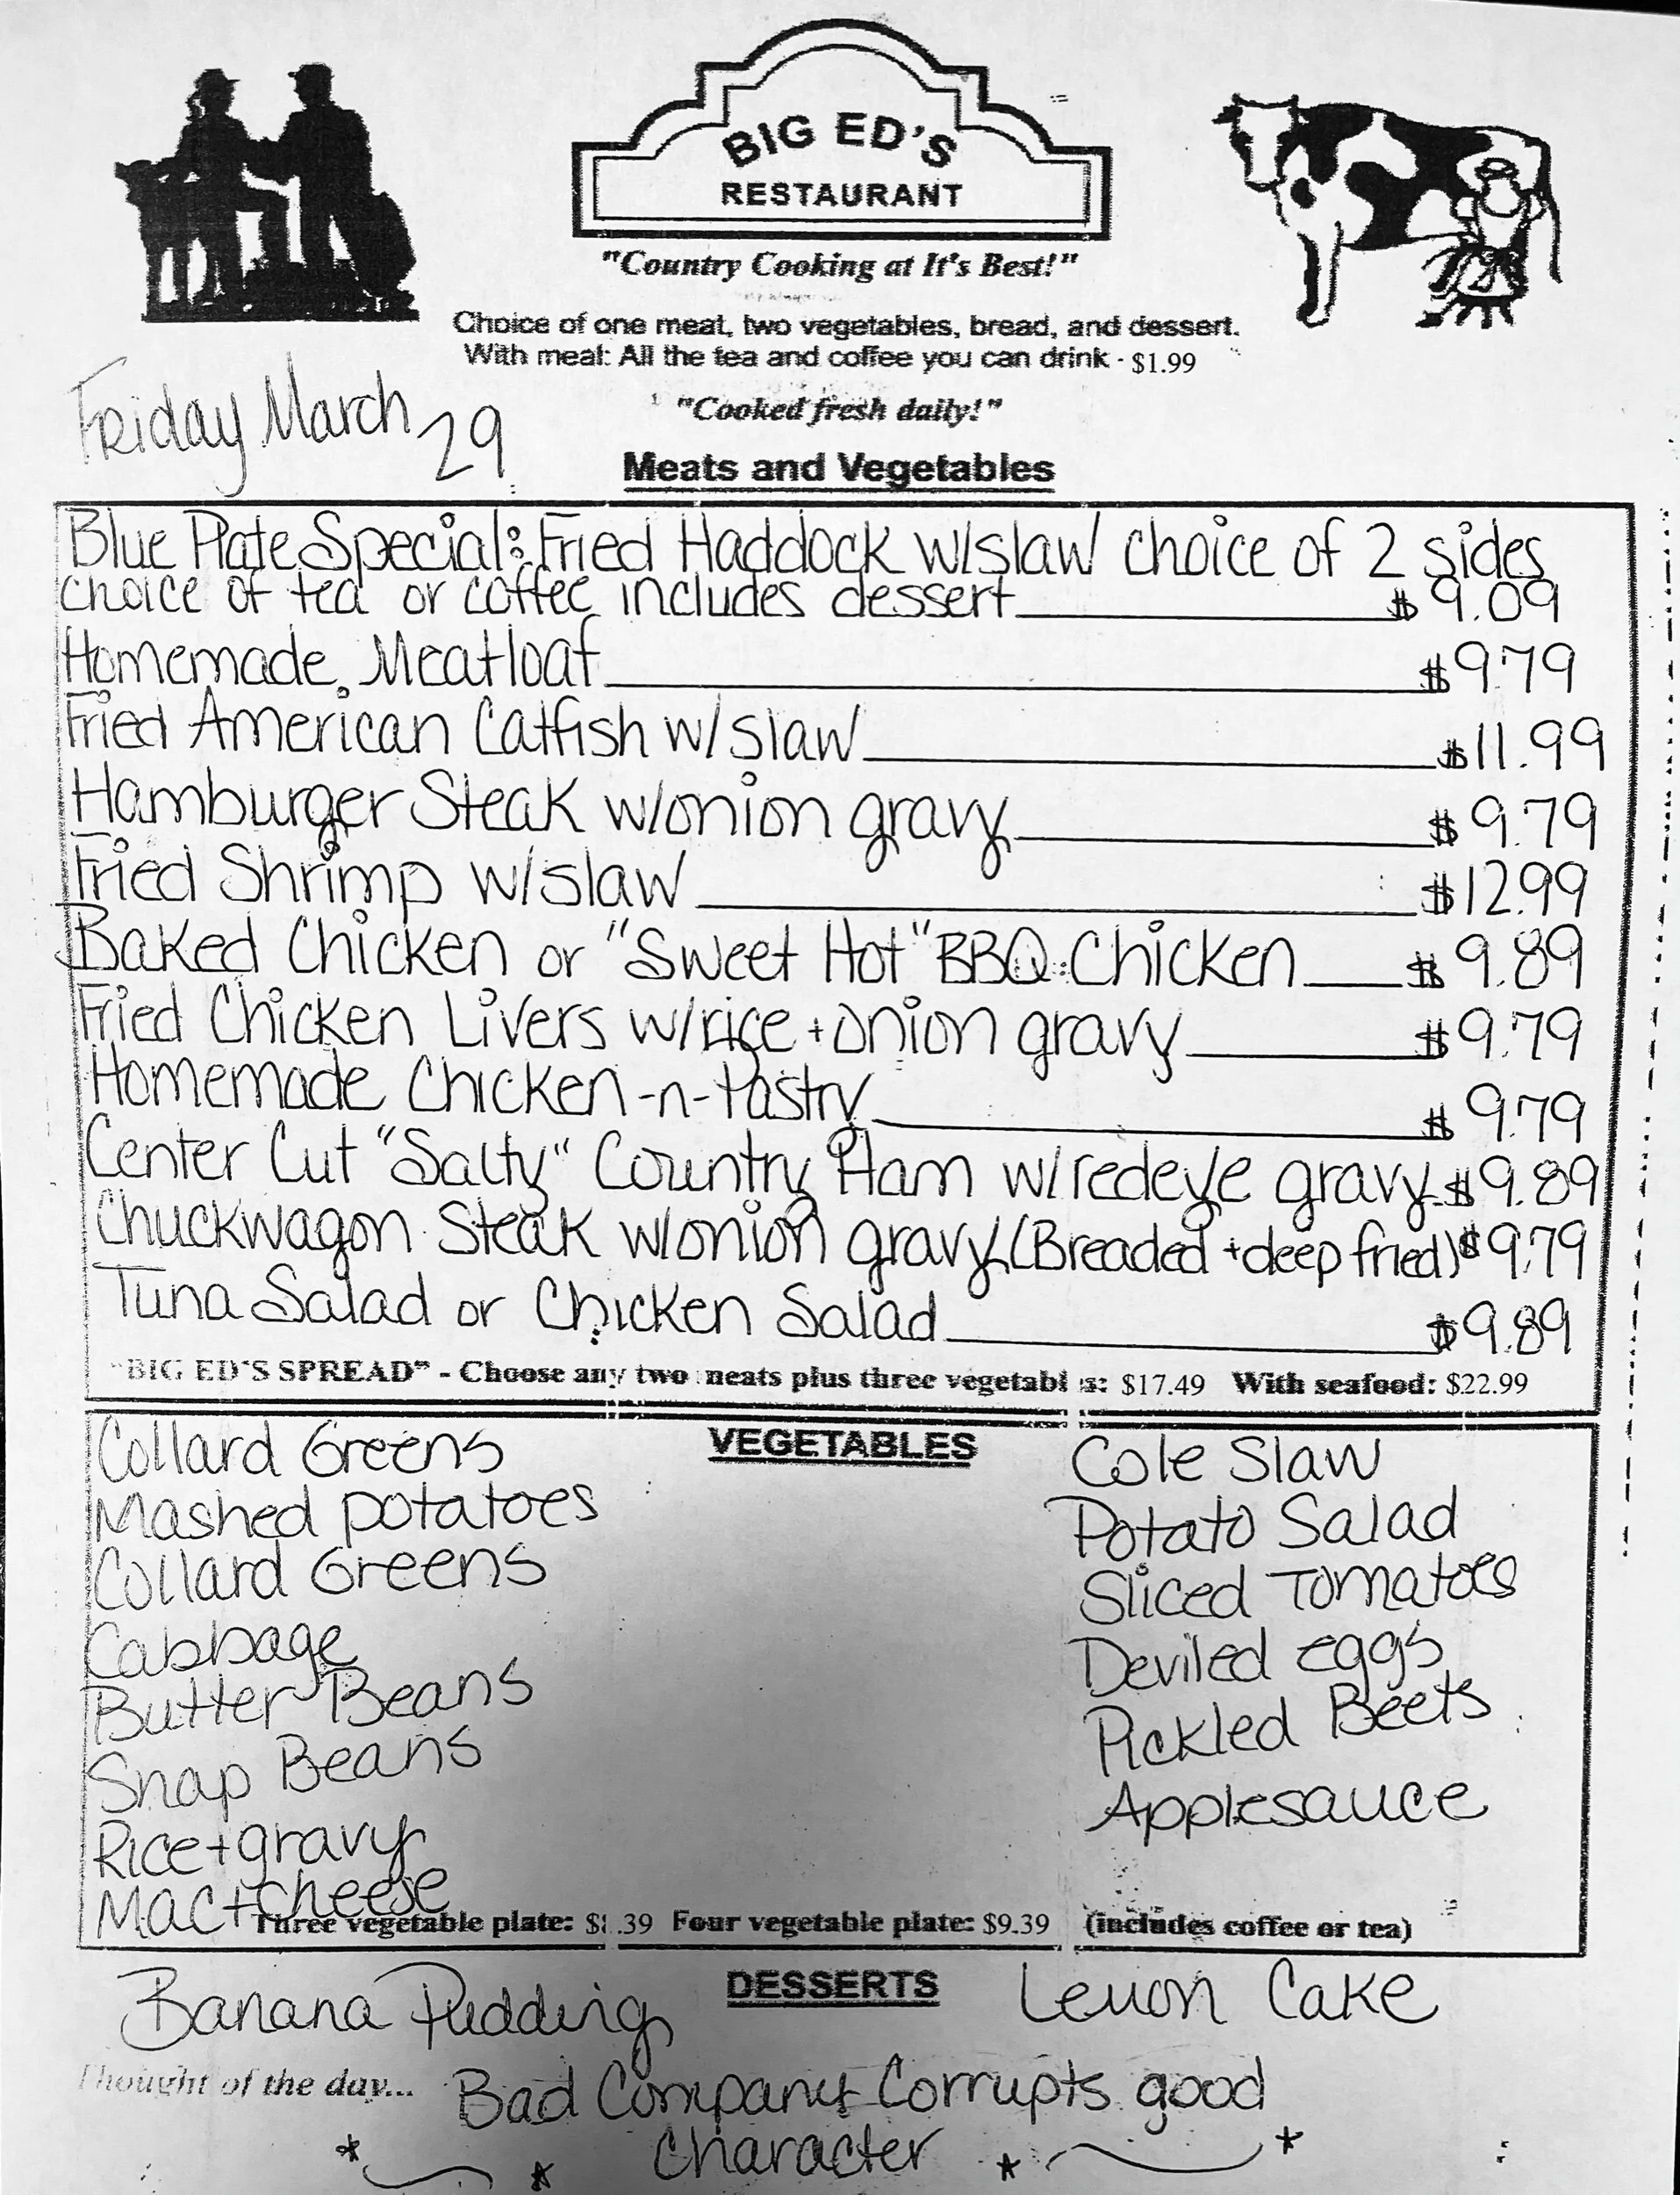 BIG ED'S
RESTAURANT
"Country Cooking at It's Best!"
Choice of one meat, two vegetables, bread, and dessert.
With meal: All the tea and coffee you can drink - $1.99
"Cooked fresh daily!"
Friday March 29
Meats and Vegetables
Blue Plate Special: Fried Haddock w/slaw choice of 2 sides
choice of tea or coffee includes dessert $9.09
Homemade Meatloaf $9.79
Fried American Catfish w/slaw $11.99
Hamburger Steak w/onion gravy $9.79
Fried Shrimp w/slaw $12.99
Baked Chicken or "Sweet Hot" BBQ Chicken $9.89
Fried Chicken Livers w/rice + onion gravy $9.79
Homemade Chicken-n-Pastry $9.79
Center Cut "Salty" Country Ham w/redeye gravy $9.89
Chuckwagon Steak w/onion gravy (Breaded + deep fried) $9.79
Tuna Salad or Chicken Salad $9.89
"BIG ED'S SPREAD" - Choose any two meats plus three vegetables: $17.49 With seafood: $22.99
VEGETABLES
Collard Greens
Mashed potatoes
Collard Greens
Cabbage
Butter Beans
Snap Beans
Rice + gravy
Mac + cheese
Cole Slaw
Potato Salad
Sliced Tomatoes
Deviled eggs
Pickled Beets
Applesauce
Three vegetable plate: .39 Four vegetable plate: $9.39 (includes coffee or tea)
DESSERTS
Banana Pudding
Lemon Cake
Thought of the day...
Bad Company Corrupts good
character